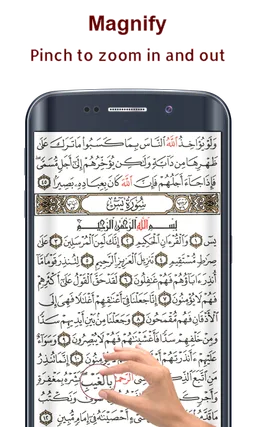 Magnify
Pinch to zoom in and out
وَلَوْ يُؤَاخِذُ اللَّهُ النَّاسَ بِمَا كَسَبُوا مَا تَرَكَ عَلَىٰ
ظَهْرِهَا مِن دَابَّةٍ وَلَٰكِن يُؤَخِّرُهُمْ إِلَىٰ أَجَلٍ مُّسَمًّى
فَإِذَا جَاءَ أَجَلُهُمْ فَإِنَّ اللَّهَ كَانَ بِعِبَادِهِ بَصِيرًا ٤٥
سُورَةُ يسٓ
بِسْمِ اللَّهِ الرَّحْمَٰنِ الرَّحِيمِ
يسٓ ١ وَالْقُرْءَانِ الْحَكِيمِ ٢ إِنَّكَ لَمِنَ الْمُرْسَلِينَ ٣ عَلَىٰ
صِرَاطٍ مُّسْتَقِيمٍ ٤ تَنزِيلَ الْعَزِيزِ الرَّحِيمِ ٥ لِتُنذِرَ قَوْمًا مَّا
أُنذِرَ ءَابَاؤُهُمْ فَهُمْ غَٰفِلُونَ ٦ لَقَدْ حَقَّ الْقَوْلُ عَلَىٰ أَكْثَرِهِمْ
فَهُمْ لَا يُؤْمِنُونَ ٧ إِنَّا جَعَلْنَا فِي أَعْنَٰقِهِمْ أَغْلَٰلًا فَهِيَ إِلَى
الْأَذْقَانِ فَهُم مُّقْمَحُونَ ٨ وَجَعَلْنَا مِن بَيْنِ أَيْدِيهِمْ سَدًّا
وَمِنْ خَلْفِهِمْ سَدًّا فَأَغْشَيْنَٰهُمْ فَهُمْ لَا يُبْصِرُونَ ٩ وَسَوَاءٌ
عَلَيْهِمْ ءَأَنذَرْتَهُمْ أَمْ لَمْ تُنذِرْهُمْ لَا يُؤْمِنُونَ ١٠ إِنَّمَا تُنذِرُ
مَنِ اتَّبَعَ الذِّكْرَ الرَّحْمَٰنَ بِالْغَيْبِ فَبَشِّرْهُ بِمَغْفِرَةٍ
وَأَجْرٍ وَنَكْتُبُ
مَا قَدَّمُوا أَحْصَيْنَٰهُ فِي إِمَامٍ مُّبِينٍ ١٢